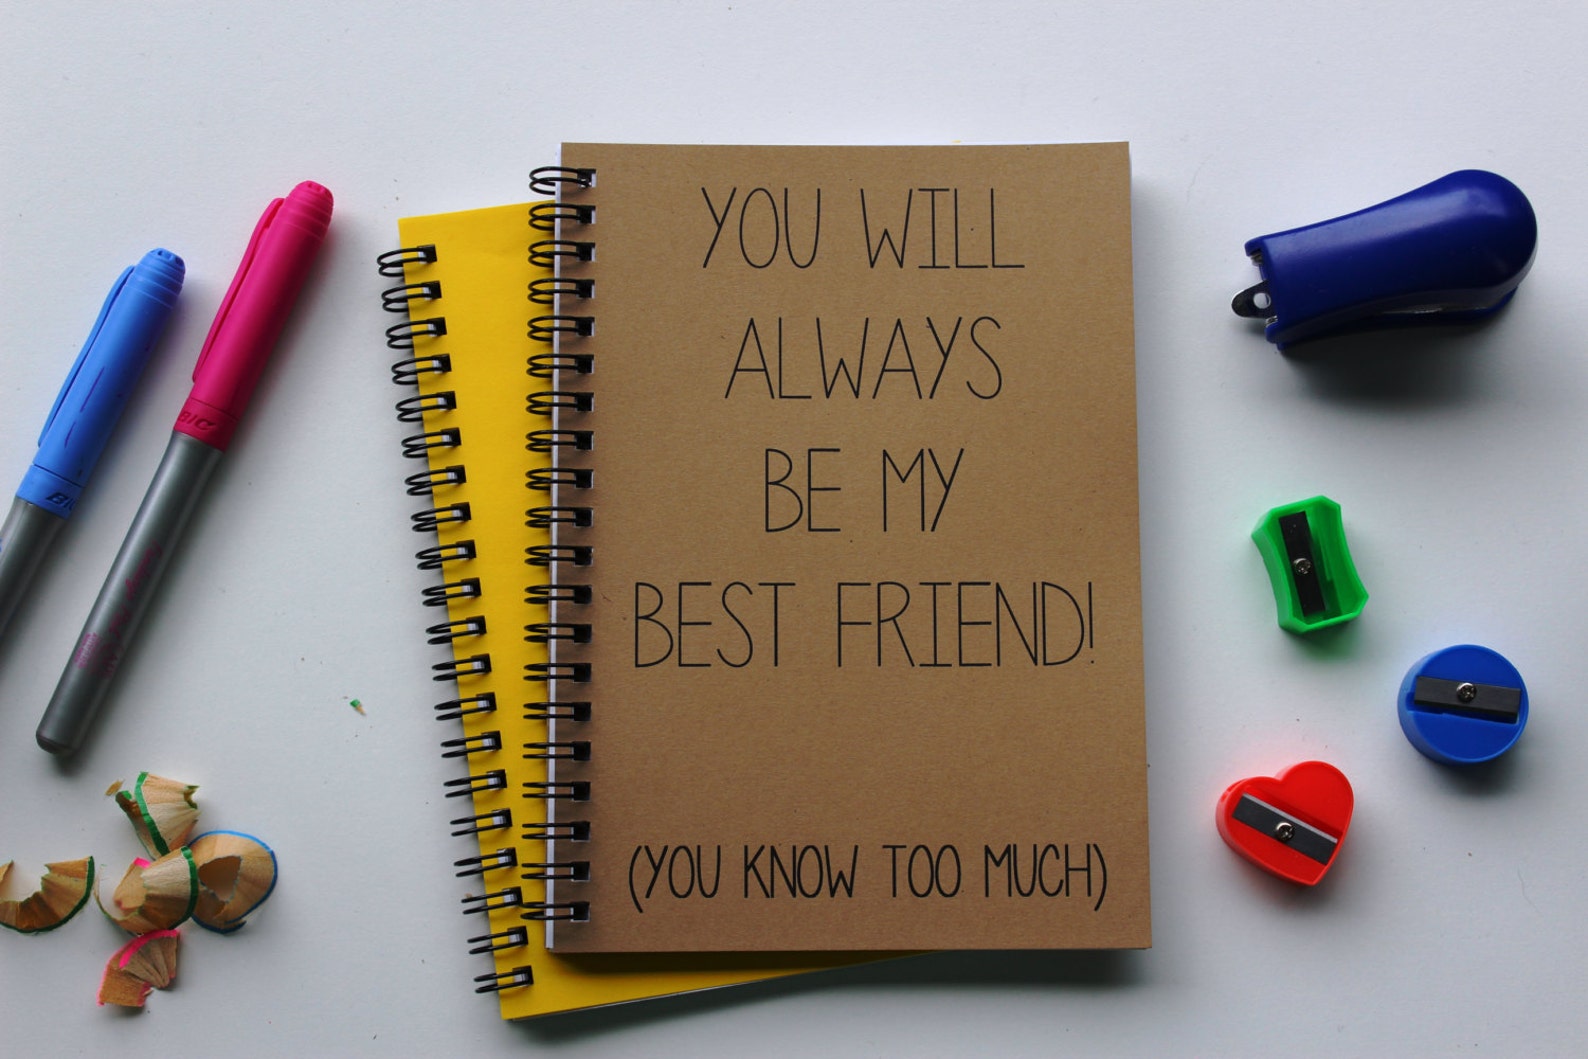 YOU WILL
ALWAYS
BE MY
BEST FRIEND!
(YOU KNOW TOO MUCH)
BIC
BIC